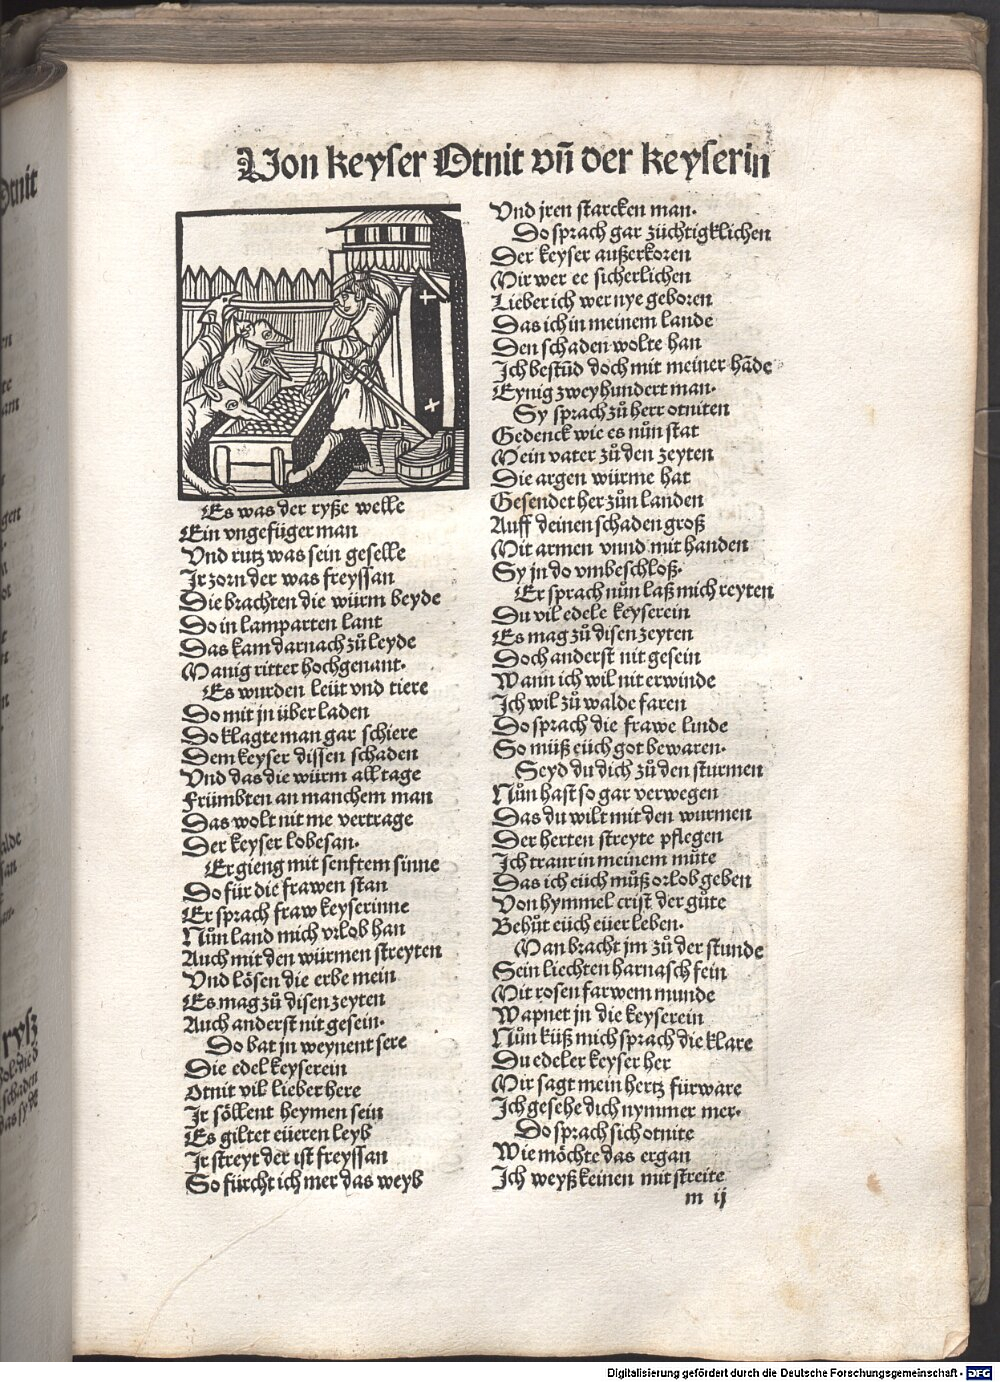 Von keyser Otnit vñ der keyserin
Es was der ryße welle
Ein vngefüger man
Vnd rutz was sein geselle
Ir zorn der was freyssan
Die brachten die würm beyde
Do in lamparten lant
Das kam darnach zů leyde
Manig ritter hochgenant.
Es wurden leüt vnd tiere
Do mit jn über laden
Do klagte man gar schiere
Dem keyser dissen schaden
Vnd das die würm all tage
Frümbten an manchem man
Das wolt nit me vertrage
Der keyser lobesan.
Er gieng mit senftem sinne
Do für die frawen stan
Er sprach fraw keyserinne
Nůn land mich vrlob han
Auch mit den würmen streyten
Vnd lösen die erbe mein
Es mag zů disen zeyten
Auch anderst nit gesein.
Do bat jn weynent sere
Die edel keyserein
Otnit vil lieber here
Ir söllent heymen sein
Es giltet eüeren leyb
Ir streyt der ist freyssan
So fürcht ich mer das weyb
Vnd jren starcken man.
Do sprach gar züchtigklichen
Der keyser außerkoren
Mir wer ee sicherlichen
Lieber ich wer nye geboren
Das ich in meinem lande
Den schaden wolte han
Ich bestůd doch mit meiner hãde
Eynig zweyhundert man.
Sy sprach zů herr otniten
Gedenck wie es nůn stat
Mein vater zů den zeyten
Die argen würme hat
Gesendet her zůn landen
Auff deinen schaden groß
Mit armen vnnd mit handen
Sy jn do vmbeschloß.
Er sprach nůn laß mich reyten
Du vil edele keyserein
Es mag zů disen zeyten
Doch anderst nit gesein
Wann ich wil nit erwinde
Ich wil zů walde faren
Do sprach die frawe linde
So müß eüch got bewaren.
Seyd du dich zů den sturmen
Nůn hast so gar verwegen
Das du wilt mit den wurmen
Der herten streyte pflegen
Ich traur in meinem můte
Das ich eüch můß orlob geben
Von hymmel crist der gůte
Behůt eüch eüer leben.
Man bracht jm zů der stunde
Sein liechten harnasch fein
Mit rosen farwem munde
Wapnet jn die keyserein
Nůn küß mich sprach die klare
Du edeler keyser her
Mir sagt mein hertz fürware
Ich gesehe dich nymmer mer.
Do sprach sich otnite
Wie möchte das ergan
Ich weyß keinen mit streite
m ij
Digitalisierung gefördert durch die Deutsche Forschungsgemeinschaft - DFG